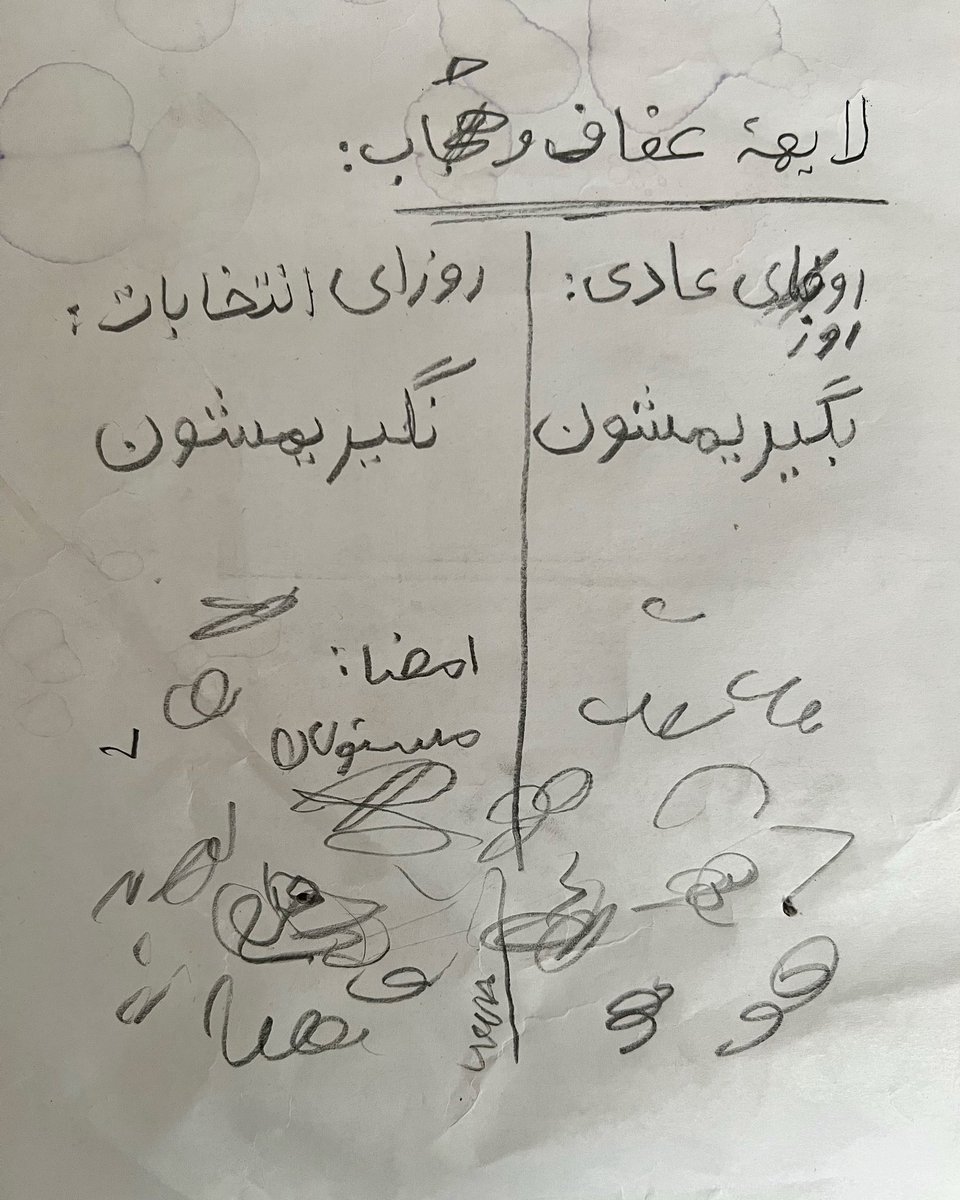 لایهۀ عفاف و حجاب:
روزای عادی:
روز
بگیریمشون
روزای انتخابات:
نگیریمشون
امضا:
مسئولان